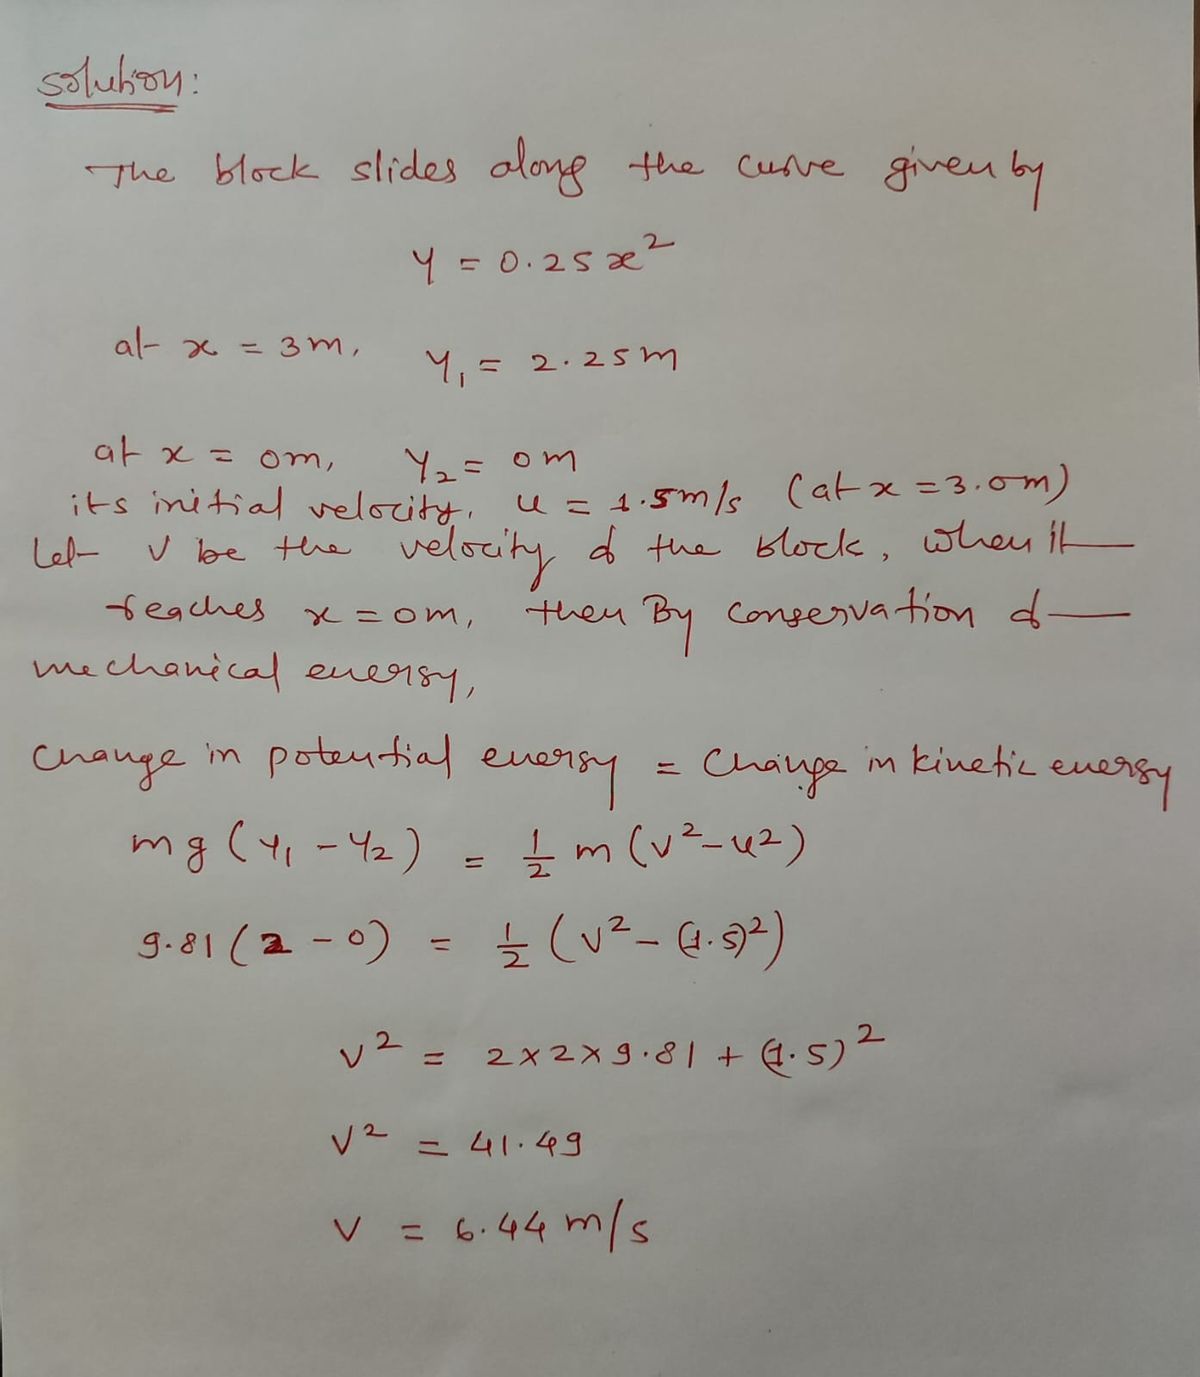 Solution:
The block slides along the curve given by
y = 0.25x²
at x = 3m, y₁ = 2.25m
at x = 0m, y₂ = 0m
its initial velocity, u = 1.5m/s (at x = 3.0m)
Let v be the velocity of the block, when it
reaches x = 0m, then By conservation of
mechanical energy,
Change in potential energy = Change in kinetic energy
mg(y₁ - y₂) = 1/2 m(v² - u²)
9.81(2 - 0) = 1/2 (v² - (1.5)²)
v² = 2×2×9.81 + (1.5)²
v² = 41.49
v = 6.44 m/s